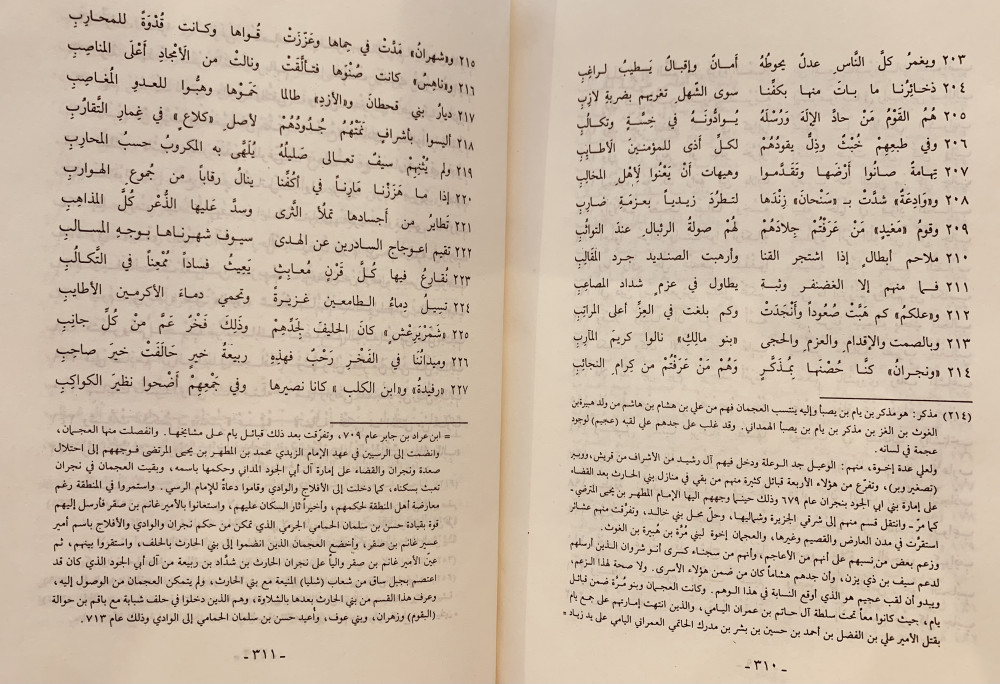 ٢٠٣ ويغمرُ كلَّ النَّاسِ عدلٌ يحوطُهُ أمانٌ وإقبالٌ يَطيبُ لراغِبِ
٢٠٤ ذخائِرُنا ما باتَ منها بكفِّنا سوى الشّهلِ تغريهم بضربةِ لازِبِ
٢٠٥ هُمُ القَوْمُ مَنْ حادَّ الإلهَ وَرُسْلَهُ يُوادُّونَهُ في خِسَّةٍ وتكالُبِ
٢٠٦ وفي طبعِهِمْ خُبْثٌ وذِلٌّ يقودُهُمْ لكلِّ أذى للمؤمنينَ الأطايِبِ
٢٠٧ تِهامةُ صانُوا أرْضَها وتَقَدَّموا وهيهات أنْ يَعْنُوا لأهْلِ المخالِبِ
٢٠٨ و«وَادِعَةٌ» شدَّتْ بـ «سَنْحانَ» زِنْدَها لتطرُدَ زيدياً بعزمةِ ضارِبِ
٢٠٩ وقومُ «مَغيدٍ» مَنْ عَرَفْتُمْ جِلادَهُمْ لهُمْ صولةُ الرئبالِ عندَ التواثُبِ
٢١٠ ملاحم أبطالٍ إذا اشتجر القنا وأرهبت الصنديد جرد المقَانِبِ
٢١١ فـما منهم إلا الغضنفر وثبـة يطاول في عزمٍ شداد المصاعِبِ
٢١٢ و«علكمُ» كم هَبَّتْ صُعُوداً وأَنْجَدَتْ وكم بلغت في العِزِّ أعلى المراتِبِ
٢١٣ وبالصمت والإقدامِ والعزمِ والحجى «بنو مالِكٍ» نالوا كريمَ المآرِبِ
٢١٤ «ونجرانُ» كنَّا حُصْنَها بمُذَكِّرٍ وَهُمْ مَنْ عَرَفْتُمْ من كِرامِ النجائِبِ
(٢١٤) مذكر: هو مذكر بن يام بن يصبأ وإليه ينتسب العجمان فهم من علي بن هشام بن هاشم من ولد هبيرة بن
الغوث بن الغز بن مذكر بن يام بن يصبأ الهمداني. وقد غلب على جدهم علي لقبه (عجيم) لوجود
عجمة في لسانه.
ولعلي عدة إخوة، منهم: الوعيل جد الوعلة ودخل فيهم آل رشيد من الأشراف من قريش، ووبير
(تصغير وبر)، وتفرّع من هؤلاء الأربعة قبائل كثيرة منهم من بقي في منازل بني الحارث بعد القضاء
على إمارة بني ابي الجود بنجران عام ٦٧٩ وذلك حينما وجههم اليها الإمام المطهر بن يحيى المرتضى ـ
كما مرّ ـ وانتقل قسم منهم إلى شرقي الجزيرة وشماليها، وحلّ محل بني خالد، وتفرّقت منهم عشائر
استقرّت في مدن العارض والقصيم وغيرها، والعجمان إخوة لبني مُرَّة بن هُبيرة بن الغوث.
وزعم بعض من نسبهم على أنهم من الأعاجم، وأنهم من سجناء كسرى أنو شروان الذين أرسلهم
لدعم سيف بن ذي يزن، وأن جدهم هشاماً كان من ضمن هؤلاء الأسرى. ولا صحة لهذا الزعم،
ويبدو أن لقب عجيم هو الذي أوقع النسابة في هذا الوهم. وكانت العجمان وبنو مُرّة ضمن قبائل
يام، حيث كانوا معاً تحت سلطة آل حاتم بن عمران اليامي، والذين انتهت إمارتهم على جمع يام
بقتل الأمير علي بن الفضل بن أحمد بن حسين بن بشر بن مدرك الحاتمي العمراني اليامي على يد زياد =
ـ ٣١٠ ـ
٢١٥ و«شهرانُ» مَدَّتْ في حِماها وعَزَّزَتْ قُـواها وكـانت قُدْوَةً للمحارِبِ
٢١٦ و«ناهِسُ» كانت صُنْوَها فتـألَّقَتْ ونالتْ من الأمْجادِ أعْلَى المناصِبِ
٢١٧ ديارُ بني قحطانَ و«الأزدِ» طالما حَمَوْها وهبُّوا للعدوِ المُغاصِبِ
٢١٨ أليسوا بأشرافٍ نَمَتْهُمْ جُدُودُهُمْ لأصلِ «كلاعٍ» في غِمارِ التَّقارُبِ
٢١٩ ولم يُثْنِهِمْ سيفُ تعالى صَليلُهُ يُلَهَّى به المكروبُ حسبُ المحاربِ
٢٢٠ إذا ما هَزَزْنا مَارِناً في أكُفِّنا ينالُ رقاباً من جُموعِ الهوارِبِ
٢٢١ تَطايرُ من أجسادها تملأُ الثَّرى وسدَّ عَليها الذُّعْر كُلَّ المذاهِبِ
٢٢٢ تقيم اعوجاج السادرين عن الهدى سيوف شهرناها بوجهِ المسالِبِ
٢٢٣ نُقارِعُ فيها كُلَّ قَرْنٍ مُعابِثٍ يَعِيثُ فساداً مُمْعِناً في التَّكالُبِ
٢٢٤ تسيلُ دِماءُ الطامعين غزيرةً وتحمي دماءَ الأكرمين الأطايبِ
٢٢٥ «شَمَرْيَرِعْشٍ» كانَ الحليفَ لجَدِّهِمْ وذَلِكَ فَخْرُ عَمَّ مِنْ كُلِّ جانِبِ
٢٢٦ وميدانُنا في الفَخْرِ رَحْبٌ فهذِهِ ربيعةُ خيرٍ حَالَفَتْ خيرَ صاحِبِ
٢٢٧ «رفيدةُ» و«ابن الكلب» كانا نصيرها وفي جَمْعِهِمْ أضْحوا نظيرَ الكواكِبِ
= ابن عراد بن جابر عام ٧٠٩، وتفرّقت بعد ذلك قبائل يام على مشايخها. وانفصلت منها العجمان،
وانضمت إلى الرسيين في عهد الإمام الزيدي محمد بن المطهر بن يحيى المرتضى فوجههم إلى احتلال
صعدة ونجران والقضاء على إمارة آل أبي الجود المداني وحكمها باسمه، وبقيت العجمان في نجران
تعبث بسكناه، كما دخلت إلى الأفلاج والوادي وقاموا دعاةً للإمام الرسي. واستمروا في المنطقة رغم
معارضة أهل المنطقة لحكمهم، وأخيراً ثار السكان عليهم، واستعانوا بالأمير غانم بن صقر فأرسل إليهم
قوة بقيادة حسن بن سلمان الحمامي الجرمي الذي تمكن من حكم نجران والوادي والأفلاج باسم أمير
عسير غانم بن صقر، وأخضع العجمان الذين انضموا إلى بني الحارث بالحلف، واستقروا بينهم، ثم
عين الأمير غانم بن صقر والياً على نجران الحارث بن شدَّاد بن ربيعة من آل أبي الجود الذي كان قد
اعتصم بجبل ساق من شعاب (شليا) المنيعة مع بني الحارث، ولم يتمكن العجمان من الوصول إليه،
وعرف هذا القسم من بني الحارث بعدها بالشلاوة، وهم الذين دخلوا في حلف شبابة مع باقم بن حوالة
(البقوم) وزهران، وبني عوف، وأعيد حسن بن سلمان الحمامي إلى الوادي وذلك عام ٧١٣.
ـ ٣١١ ـ